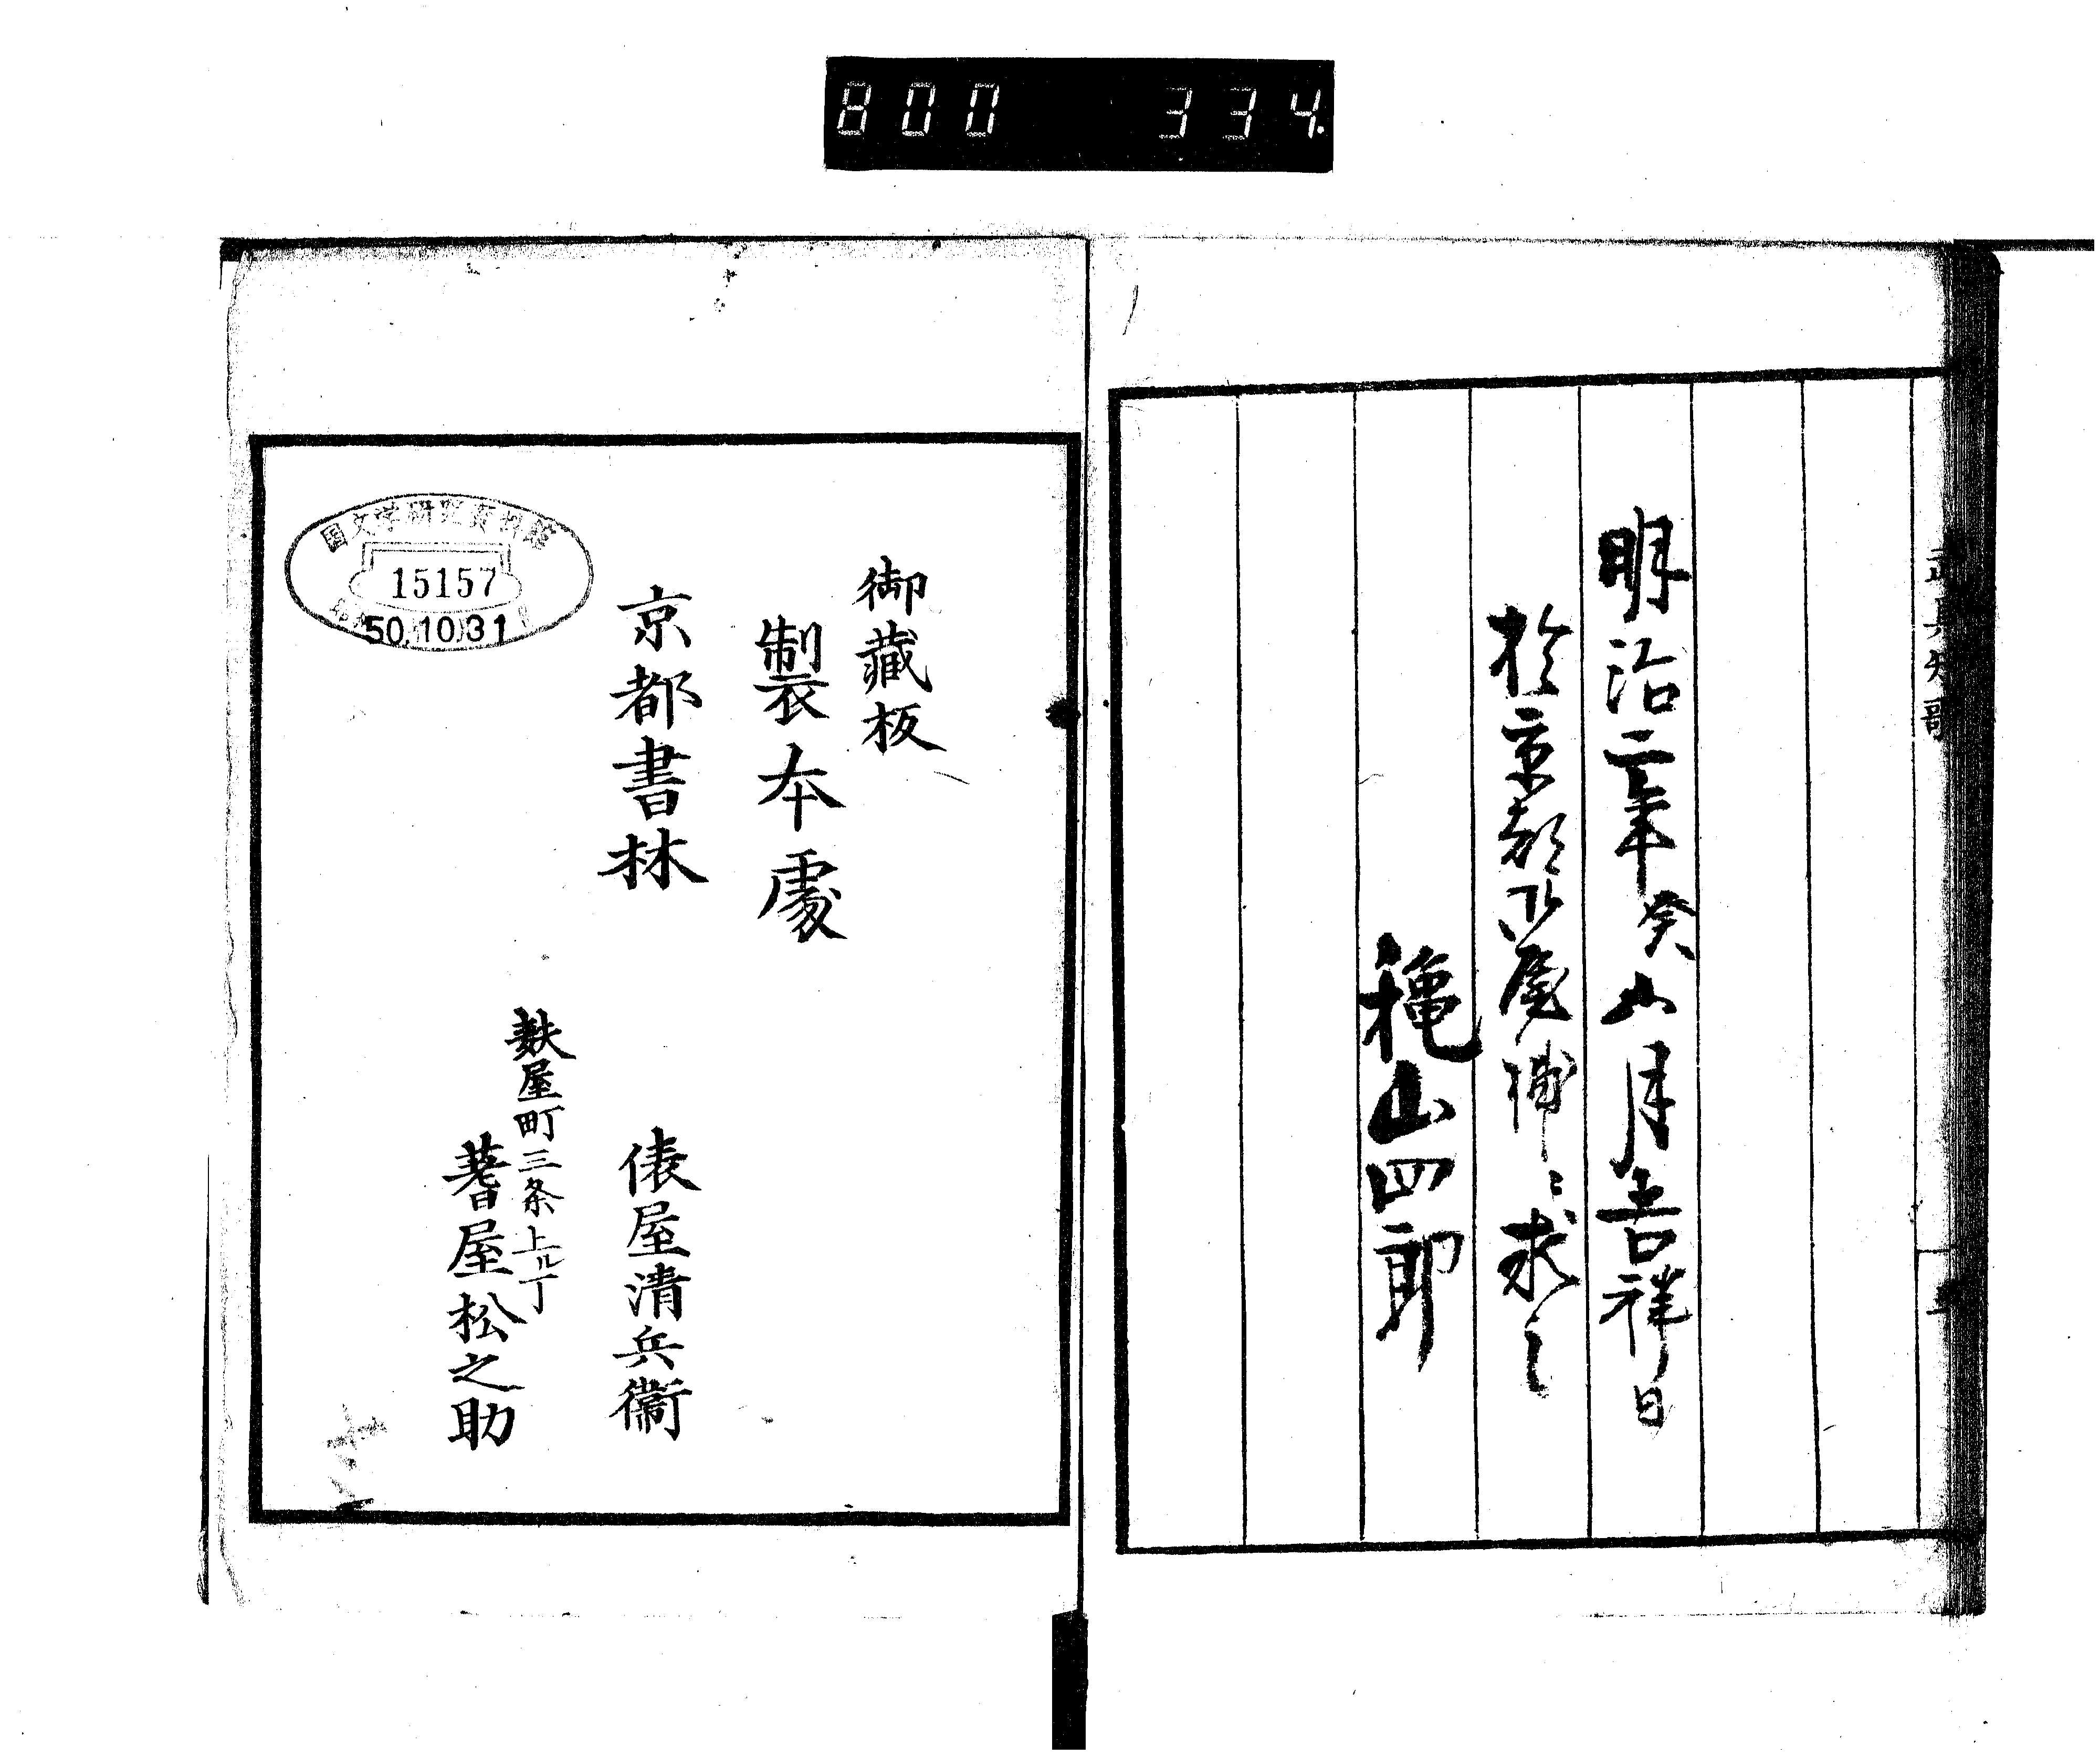 800 334.
明治二年癸
月吉祥日
於京都
求之
穐山四郎
御藏板
製本處
京都書林
俵屋清兵衞
麩屋町三条上ル丁
蓍屋松之助
国文学研究資料館
15157
50.10.31